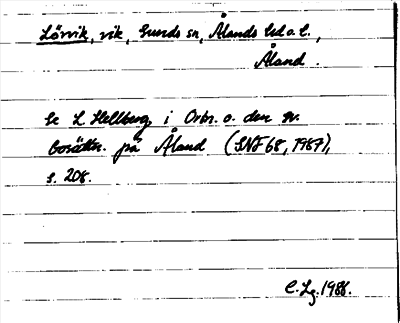 Lövvik, vik, Sunds sn, Ålands hd o. l.,
Åland.
Se L Hellberg i Ortn. o. den sv.
bosättn. på Åland (SNF 68, 1987),
s. 208.
C. Lg. 1988.